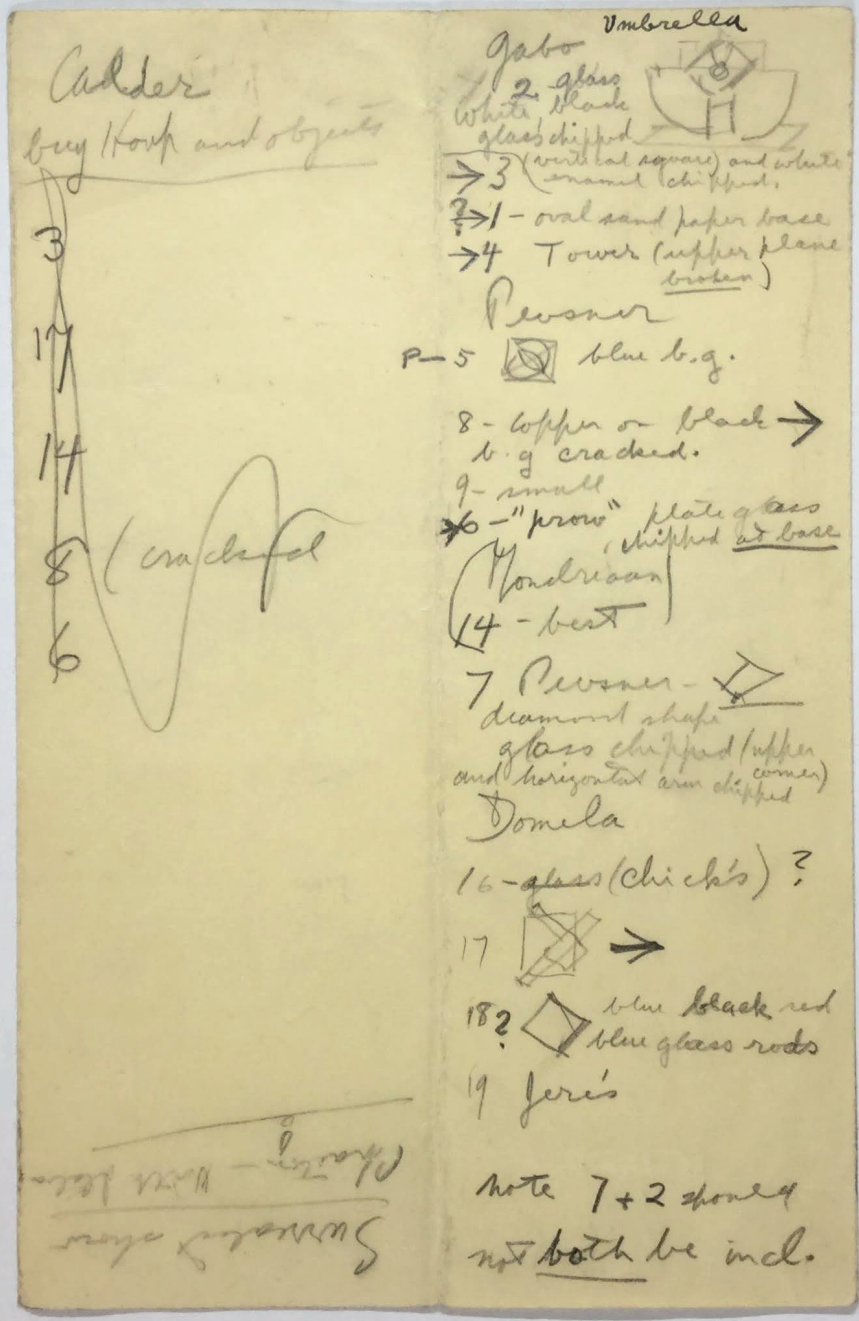 Calder
buy Hoop and objects
3
17
14
8 (cracked
6
Surrealist show
Umbrella
Gabo
2 glass
white black
glass chipped
→3 (vertical square) and white
enamel chipped.
?→1 - oval sand paper base
→4 Tower (upper plane
broken)
Pevsner
P-5 blue b.g.
8 - copper on black →
b.g cracked.
9 - small
→6 - "prow" plate glass
chipped at base
(Mondriaan)
14 - best
7 Pevsner -
diamond shape
glass chipped (upper
corner)
and horizontal arm chipped
Domela
16 - glass (chick's) ?
17 →
18? blue black red
blue glass rods
19 Jere's
note 7 + 2 should
not both be incl.